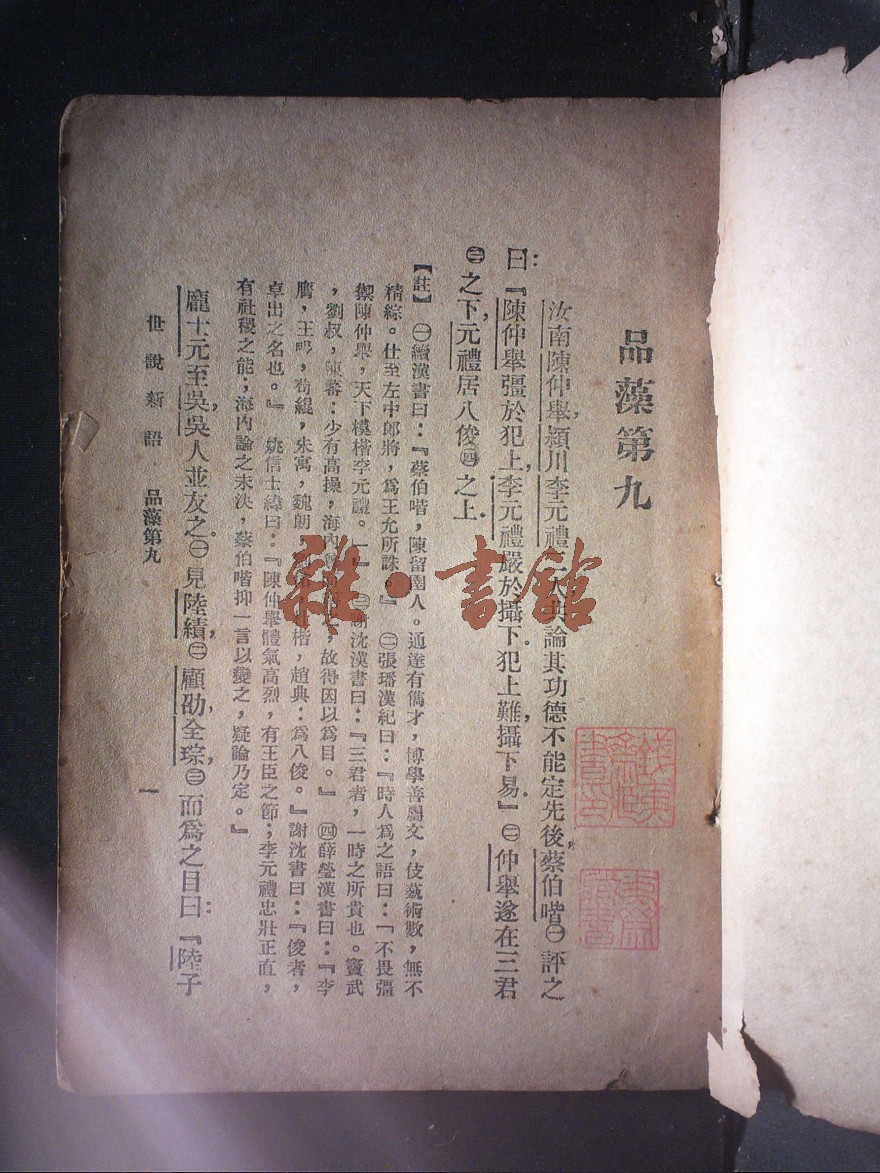 品藻第九
汝南陳仲舉,潁川李元禮二人共論其功德不能定先後,蔡伯喈㊀評之
曰:『陳仲舉彊於犯上,李元禮嚴於攝下.犯上難,攝下易.』㊁仲舉遂在三君
㊂之下,元禮居八俊㊃之上.
【註】㊀續漢書曰:『蔡伯喈,陳留圉人。通達有儁才,博學善屬文,伎藝術數,無不
精綜。仕至左中郎將,爲王允所誅。』㊁張璠漢紀曰:『時人爲之語曰:「不畏彊
禦陳仲舉,天下模楷李元禮。」』㊂謝沈漢書曰:『三君者,一時之所貴也。竇武
,劉叔,陳蕃:少有高操,海內,故得因以爲目。』㊃薛瑩漢書曰:『李
膺,王暢,荀緄,朱寓,魏朗,楷,趙典:爲八俊。』謝沈書曰:『俊者,
卓出之名也。』姚信士緯曰:『陳仲舉體氣高烈,有王臣之節;李元禮忠壯正直,
有社稷之能;海內論之未決,蔡伯喈抑一言以變之,疑論乃定。』
龐士元至吳,吳人並友之。㊀見陸績,㊁顧劭,全琮,㊂而爲之目曰:『陸子
世說新語 品藻第九
一
雜·書館